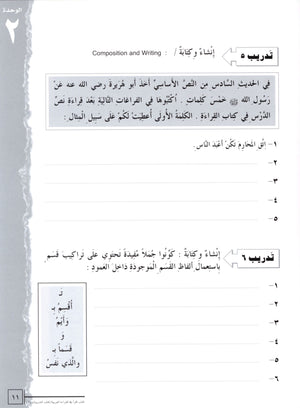 الوحدة
٢
تدريب ٥
إنشاء وكتابة / Composition and Writing :
في الحديث السادس من النص الأساسي أخذ أبو هريرة رضي الله عنه عن
رسول الله ﷺ خمس كلمات . اكتبوها في الفراغات التالية بعد قراءة نص
الدرس في كتاب القراءة . الكلمة الأولى أعطيت لكم على سبيل المثال :
١ - اتق المحارم تكن أعبد الناس .
٢ -
٣ -
٤ -
٥ -
تدريب ٦
إنشاء وكتابة : كونوا جملاً مفيدة تحتوي على تراكيب قسم
باستعمال ألفاظ القسم الموجودة داخل العمود :
١ -
٢ -
٣ -
٤ -
٥ -
٦ -
تـ
أقسم بـ
وأيم
و
قسماً بـ
والذي نفس
١١